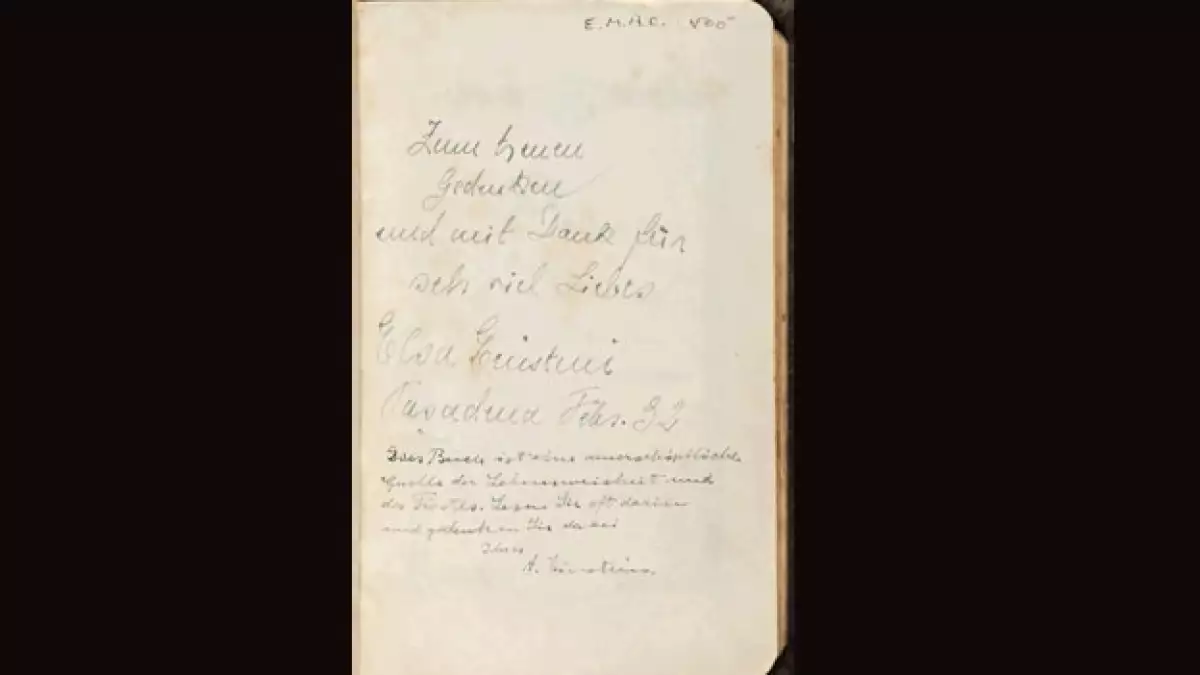 E.M.H.C. 500
Zum treuen
Gedenken
und mit Dank für
seh viel Liebes
Elsa Einstein
Pasadena Febr. 32
Dies Buch ist eine unerschöpfliche
Quelle der Lebensweisheit und
des Trostes. Lesen Sie oft darin
und gedenken Sie dabei
Ihres
A. Einsteins.